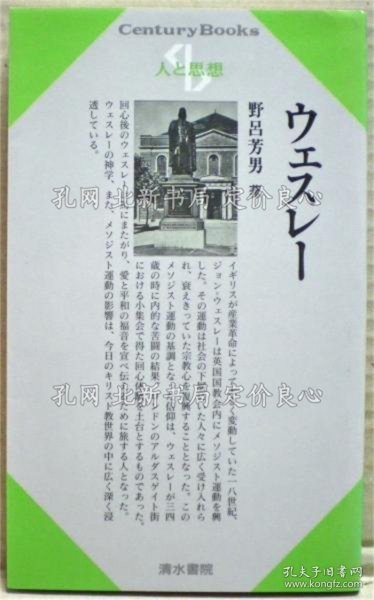 Century Books
人と思想
ウェスレー
野呂芳男 著
イギリスが産業革命によって
く変動していた一八世紀、
ジョン・ウェスレーは英国国教会内にメソジスト運動を興
した。その運動は社会の下
いた人々に広く受け入れら
れ、衰えきっていた宗教心を
興することとなった。この
メソジスト運動の基調とな
信仰は、ウェスレーが三四
歳の時に内的な苦闘の結果
ンドンのアルダスゲイト街
における小集会で得た回心体験を土台とするものであった。
回心後のウェスレーは
にまたがり、愛と平和の福音を宣べ伝えるために旅する人となった。
ウェスレーの神学、また、メソジスト運動の影響は、今日のキリスト教世界の中に広く深く浸
透している。
孔网 北新书局 定价良心
孔网 北新书局 定价良心
清水書院
孔夫子旧书网
www.kongfz.com